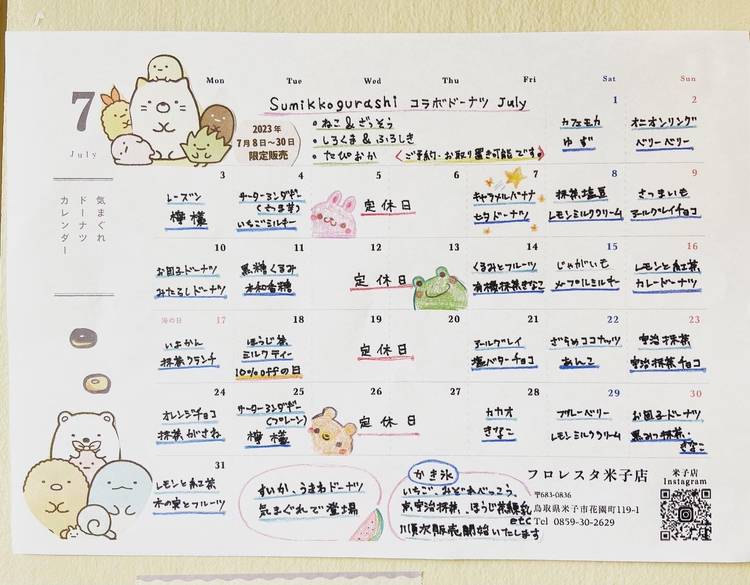 7
July
Mon Tue Wed Thu Fri Sat Sun
Sumikkogurashi コラボドーナツ July
2023年
7月8日〜30日
限定販売
ねこ&ざっそう
しろくま&ふろしき
たぴおか <ご予約・お取り置き可能です。
1
カフェモカ
ゆず
2
オニオンリング
ベリーベリー
気まぐれ
ドーナツ
カレンダー
3
レーズン
檸檬
4
サーターアンダギー
(さつま芋)
いちごミルキー
5
6
定休日
7
キャラメルバナナ
七夕ドーナツ
8
抹茶塩豆
レモンミルククリーム
9
さつまいも
アールグレイチョコ
10
お団子ドーナツ
みたらしドーナツ
11
黒糖くるみ
和香糖
12
13
定休日
14
くるみとフルーツ
有機抹茶きなこ
15
じゃがいも
メープルミルキー
16
レモンと紅茶
カレードーナツ
海の日 17
いよかん
抹茶クランチ
18
ほうじ茶
ミルクティー
10%offの日
19
20
定休日
21
アールグレイ
塩バターチョコ
22
ざらめココナッツ
あんこ
23
宇治抹茶
宇治抹茶チョコ
24
オレンジチョコ
抹茶がさね
25
サーターアンダギー
(プレーン)
檸檬
26
27
定休日
28
カカオ
きなこ
29
ブルーベリー
レモンミルククリーム
30
お団子ドーナツ
黒みつ抹茶・
きなこ
31
レモンと紅茶
木の実とフルーツ
すいか、うきわドーナツ
気まぐれで登場
かき氷
いちご、みぞれべっこう、
京宇治抹茶、ほうじ茶黒糖
etc
順次販売開始いたします
フロレスタ米子店
〒683-0836
鳥取県米子市花園町119-1
Tel 0859-30-2629
米子店
Instagram